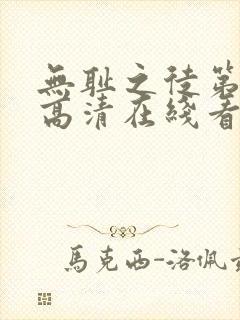 無耻之徒第
高清在綫看
馬克西-洛佩